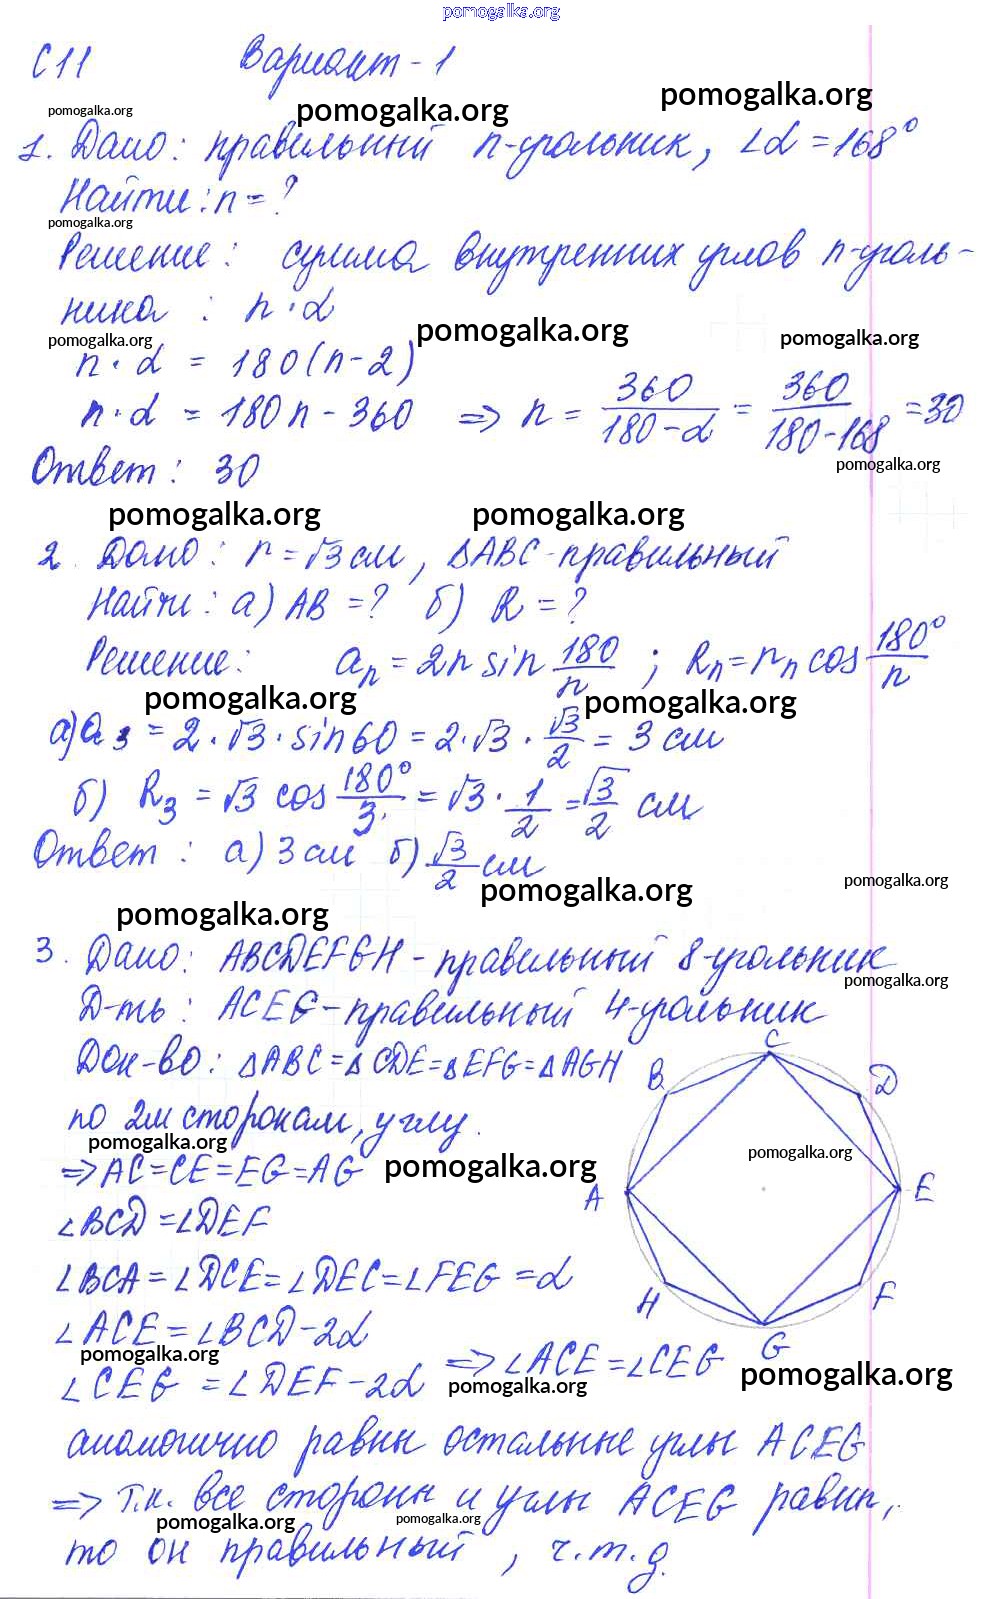 pomogalka.org
С11 Вариант-1
pomogalka.org pomogalka.org pomogalka.org
1. Дано: правильный n-угольник, ∠α = 168°
Найти: n = ?
pomogalka.org
Решение: сумма внутренних углов n-уголь-
ника : n·α
pomogalka.org pomogalka.org pomogalka.org
n·α = 180(n-2)
n·α = 180n - 360 => n = 360/(180-α) = 360/(180-168) = 30
pomogalka.org
Ответ: 30
pomogalka.org pomogalka.org
2. Дано: r = √3 см, ΔABC-правильный
Найти: а) AB = ? б) R = ?
Решение: aₙ = 2r sin 180/n ; Rₙ = rₙ cos 180°/n
pomogalka.org pomogalka.org
а) a₃ = 2·√3·sin60 = 2·√3·√3/2 = 3 см
б) R₃ = √3 cos 180°/3 = √3·1/2 = √3/2 см
Ответ: а) 3 см б) √3/2 см
pomogalka.org pomogalka.org
pomogalka.org
3. Дано: ABCDEFGH - правильный 8-угольник
pomogalka.org
Д-ть: ACEG-правильный 4-угольник
Док-во: ΔABC=ΔCDE=ΔEFG=ΔAGH
по 2м сторонам, углу.
pomogalka.org pomogalka.org pomogalka.org
=> AC=CE=EG=AG
∠BCD = ∠DEF
∠BCA = ∠DCE = ∠DEC = ∠FEG = α
∠ACE = ∠BCD - 2α
pomogalka.org
∠CEG = ∠DEF - 2α => ∠ACE = ∠CEG
pomogalka.org pomogalka.org
C
B
D
A
E
H
F
G
аналогично равны остальные углы ACEG
=> т.к. все стороны и углы ACEG равны,
pomogalka.org pomogalka.org
то он правильный, ч.т.д.